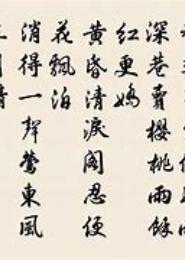 深巷賣櫻桃雨餘
紅更嬌
黃昏清淚閣忍便
花飄泊
消得一聲鶯東風
三月情